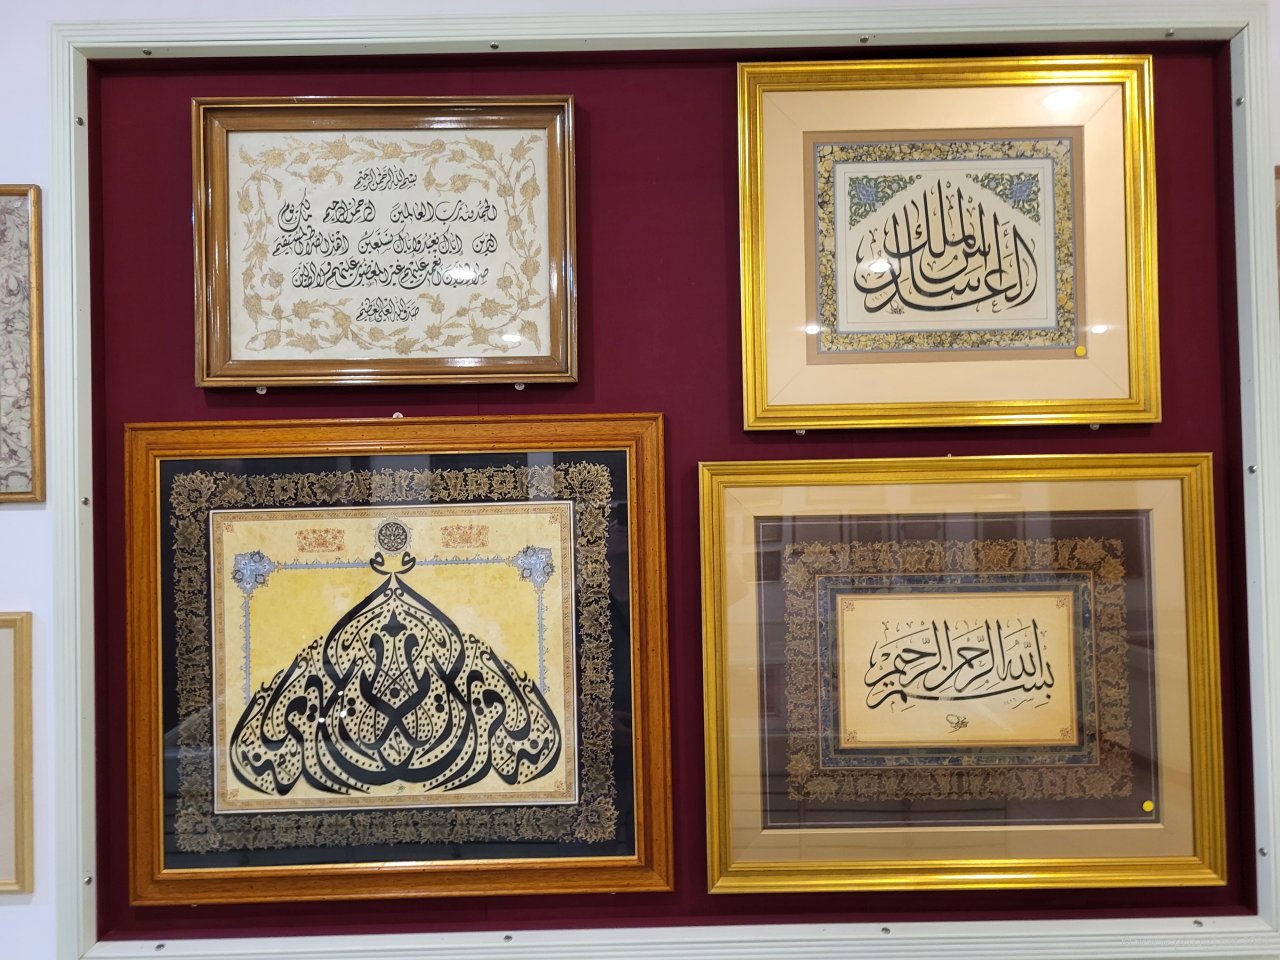 بسم الله الرحمن الرحيم
الحمد لله رب العالمين الرحمن الرحيم مالك يوم
الدين اياك نعبد واياك نستعين اهدنا الصراط المستقيم
صراط الذين انعمت عليهم غير المغضوب عليهم ولا الضالين
صدق الله العلي العظيم
العدل اساس الملك
بسم الله الرحمن الرحيم